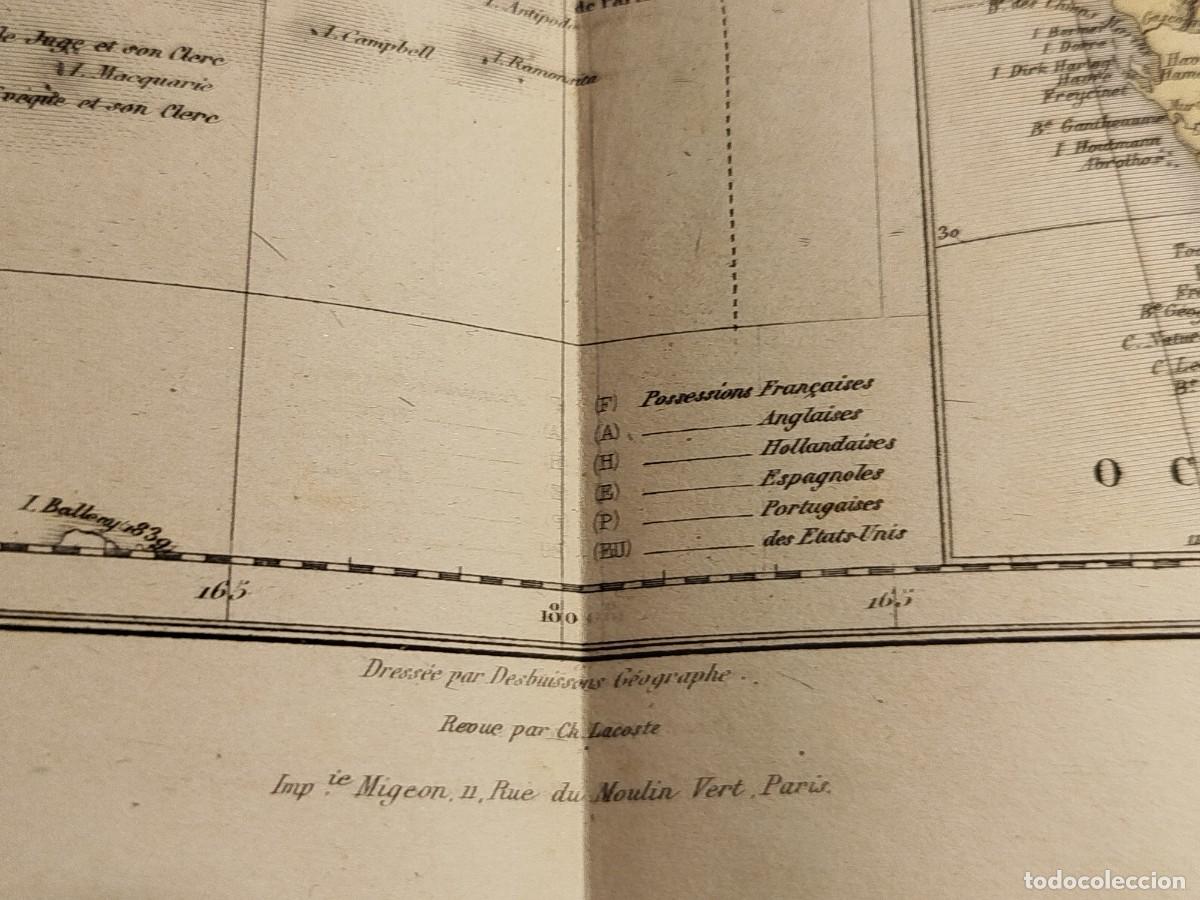 I. Antipod
de
I. Campbell
I. Ramonsita
de Juge et son Clerc
I. Macquarie
et son Clerc
Bᵉ des Chiens
I Bernier
I. Dobre
I Dirk Hartog
Hamee
Freycinet
Bᵉ Gantheaume
I Houtmann
Abrolhos
Ham
Ham
30
Bᵉ Geog
C. Natur
C Le
Bᵉ
O C
(F) Possessions Françaises
(A) Anglaises
(H) Hollandaises
(E) Espagnoles
(P) Portugaises
(EU) des Etats-Unis
I. Balleny 1839
165
180
165
Dressée par Desbuissons Géographe
Revue par Ch. Lacoste
Impⁱᵉ Migeon, 11, Rue du Moulin Vert, Paris.
todocoleccion